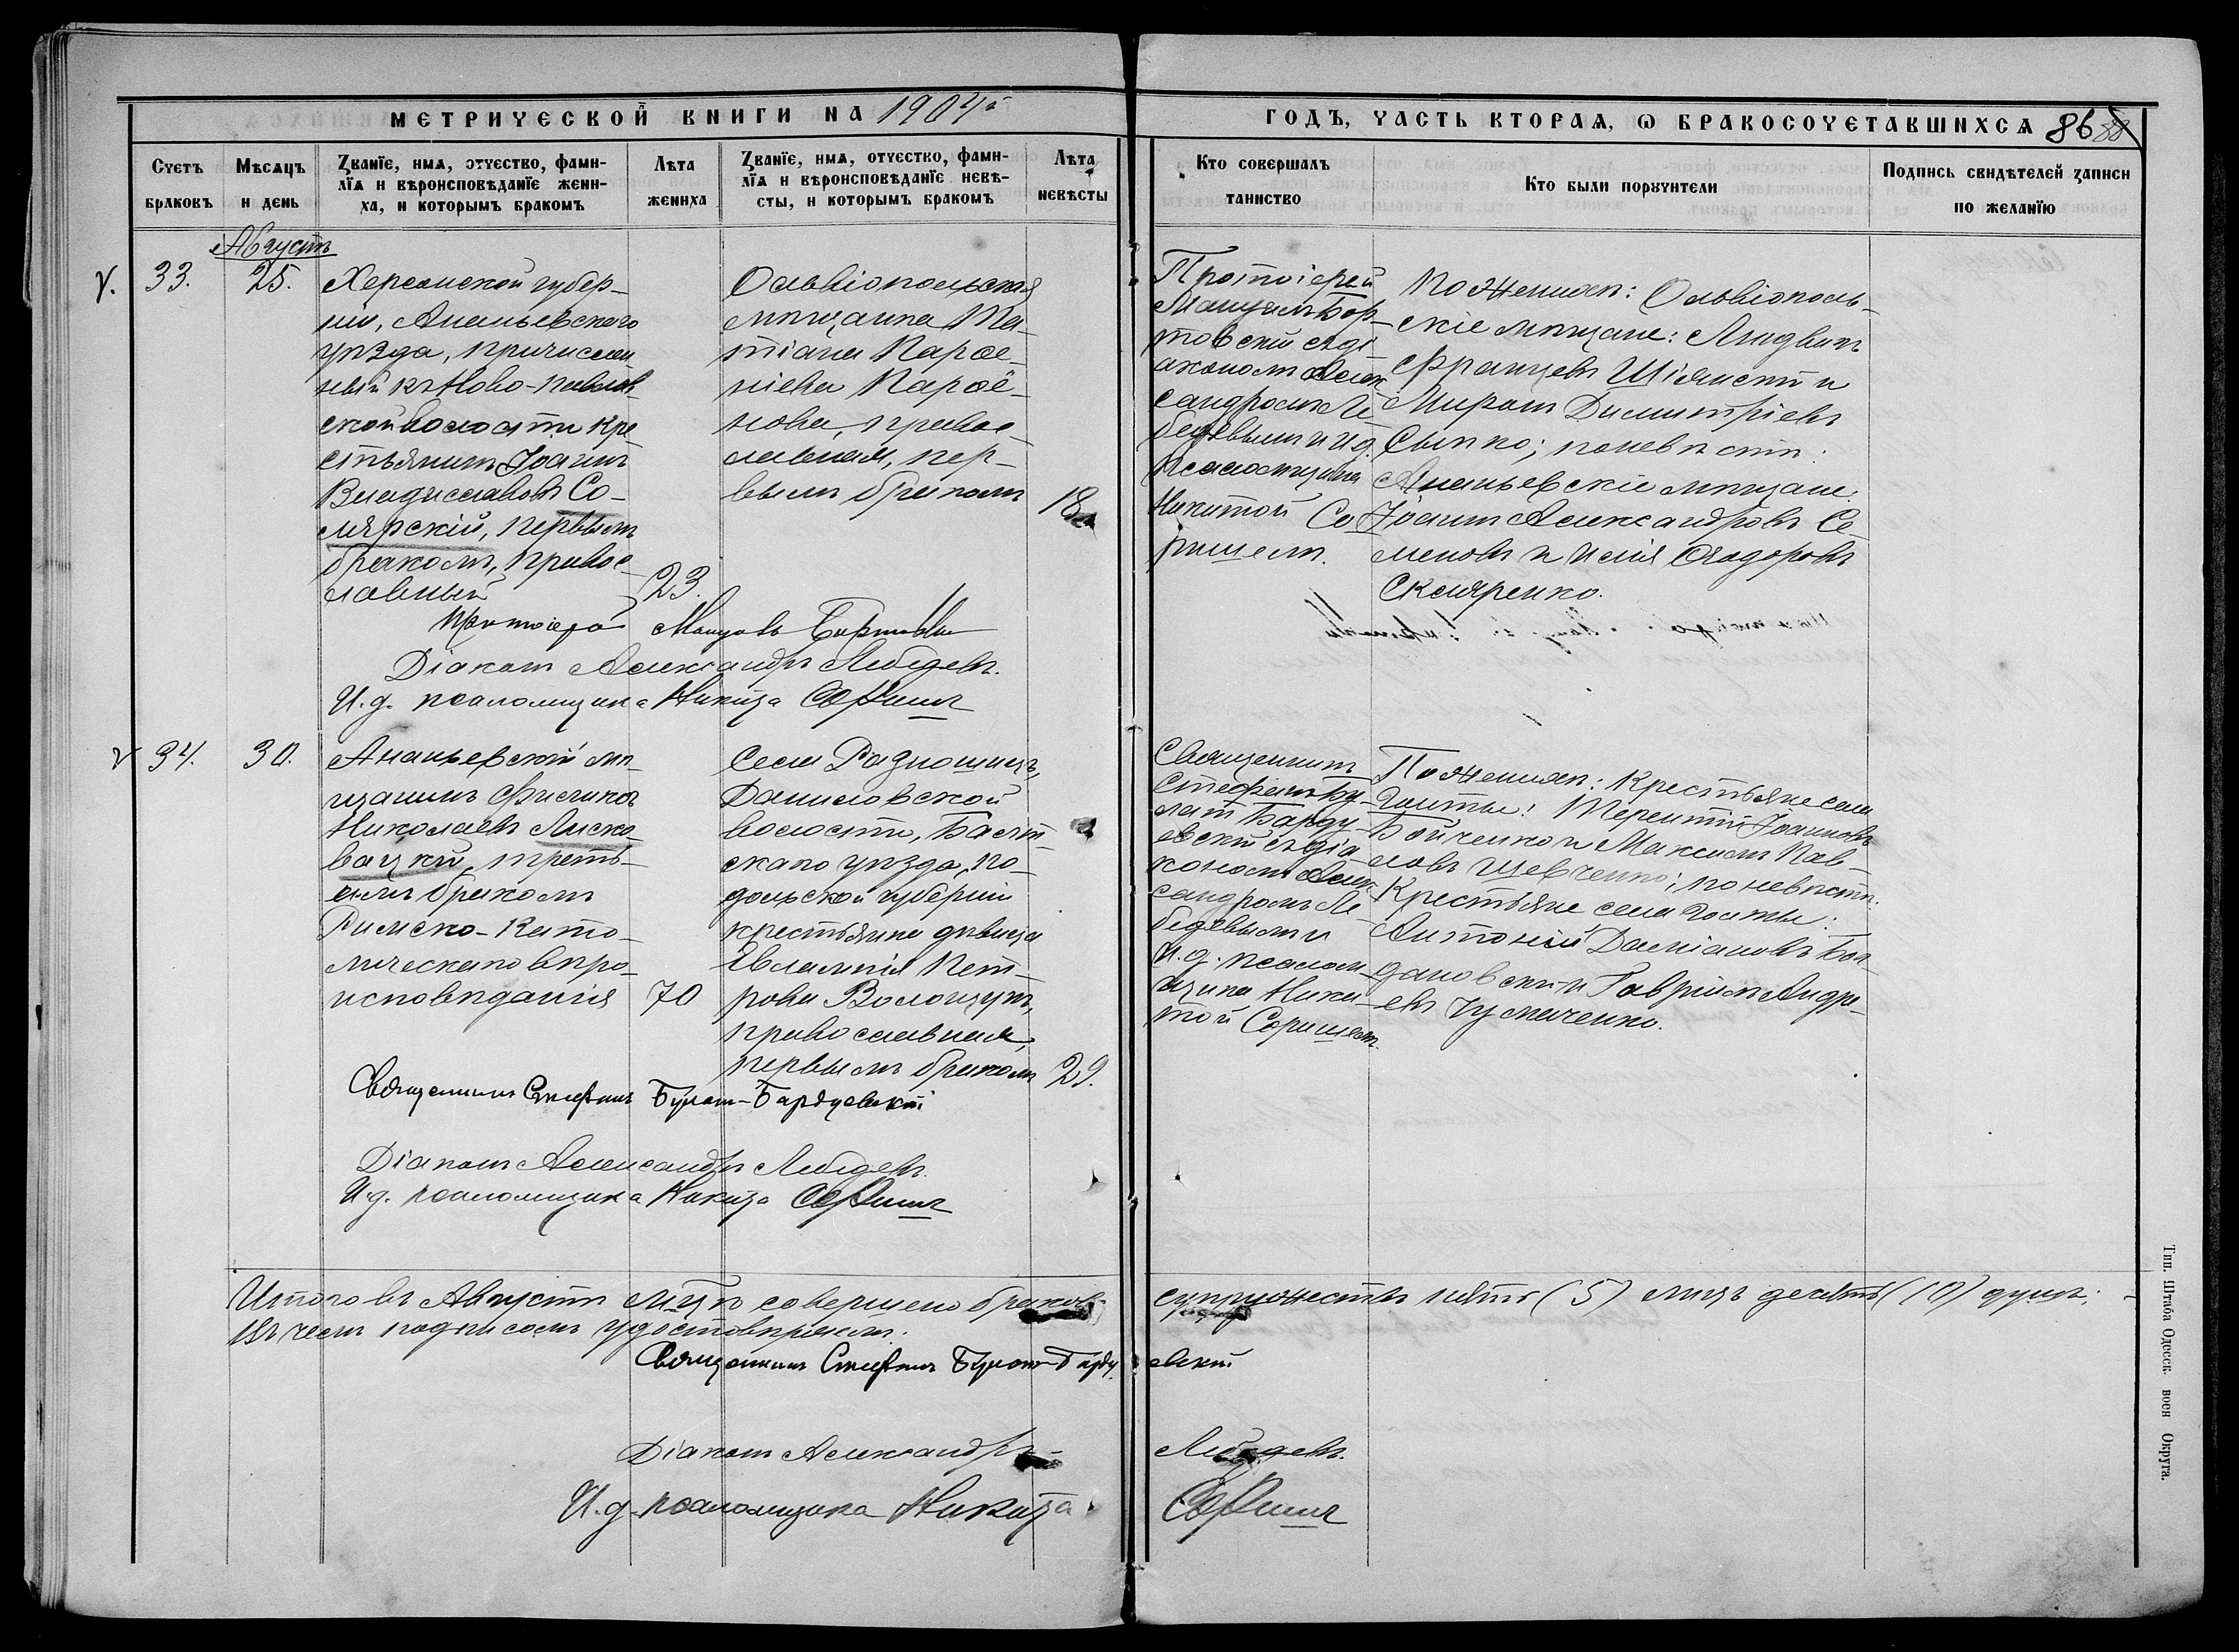 МЕТРИЧЕСКОЙ КНИГИ НА 1904й
ГОДЪ, ЧАСТЬ ВТОРАЯ, О БРАКОСОЧЕТАВШИХСЯ 86 88
Счетъ браковъ
Мѣсяцъ и день
Званїе, имя, отчество, фами-
лїя и вѣроисповѣданїе жени-
ха, и которымъ бракомъ
Лѣта жениха
Званїе, имя, отчество, фами-
лїя и вѣроисповѣданїе невѣ-
сты, и которымъ бракомъ
Лѣта невѣсты
Кто совершалъ таинство
Кто были поручители
Подпись свидѣтелей записи по желанїю
Августъ
33.
25.
Херсонской губер-
ніи, Ананьевского
уѣзда, причислен
ный къ Ново-Павлов
ской волости кре
стьянинъ Іоаннъ
Владиславовъ Со-
мярскій, первымъ
бракомъ, правос-
лавный
23.
Ольвіопольская
мѣщанка Та-
тіана Парѳе-
ніева Парѳе-
нова, правос-
лавная, пер-
вымъ бракомъ
18
Протоіерей
Мануилъ Бор-
товскій съ ді
акономъ Алек
сандромъ Ле
бедевымъ и И.д.
псаломщика
Никитой Со
ришемъ.
По женихѣ: Ольвіополь-
скіе мѣщане: Людвигъ
Францевъ Шіянстъ и
Миронъ Димитріевъ
Сытко; по невѣстѣ:
Ананьевскіе мѣщане:
Іоаннъ Александровъ Се-
меновъ и Илія Ѳеодоровъ
Скляренко.
Протоіерей Мануилъ Бортовскій
Діаконъ Александръ Лебедевъ.
И.д. псаломщика Никита Соришъ
34.
30.
Ананьевскій мѣ-
щанинъ Феликсъ
Николаевъ Лиско-
вацкій, треть-
имъ бракомъ
Римско-Като-
лическаго вѣро-
исповѣданія
70
Села Разношинцъ,
Даниловской
волости, Балт-
скаго уѣзда, По-
дольской губерніи
крестьянка дѣвица
Евлампія Пет-
рова Волощукъ,
православная,
первымъ бракомъ
29.
Священникъ
Стефанъ Бу-
латъ Барду-
евскій съ діа
кономъ Алек
сандромъ Ле
бедевымъ и
И.д. псалом-
щика Ники-
той Соришемъ.
По женихѣ: крестьяне села
Голты: Терентій Іоанновъ
Бойченко и Максимъ Пав-
ловъ Шевченко; по невѣстѣ:
крестьяне села Голты:
Антоній Даміановъ Бог-
дановскій и Гавріилъ Андре-
евъ Чумаченко.
Священникъ Стефанъ Булатъ-Бардуевскій
Діаконъ Александръ Лебедевъ.
И.д. псаломщика Никита Соришъ
Итого въ Августѣ м-цѣ совершено браков- супружествъ пять (5) лицъ десять (10) душъ;
въ чемъ подписомъ удостовѣряемъ.
Священникъ Стефанъ Булатъ-Бардуевскій
Діаконъ Александръ Лебедевъ.
И.д. псаломщика Никита Соришъ
Тип. Штаба Одесск. воен Округа.